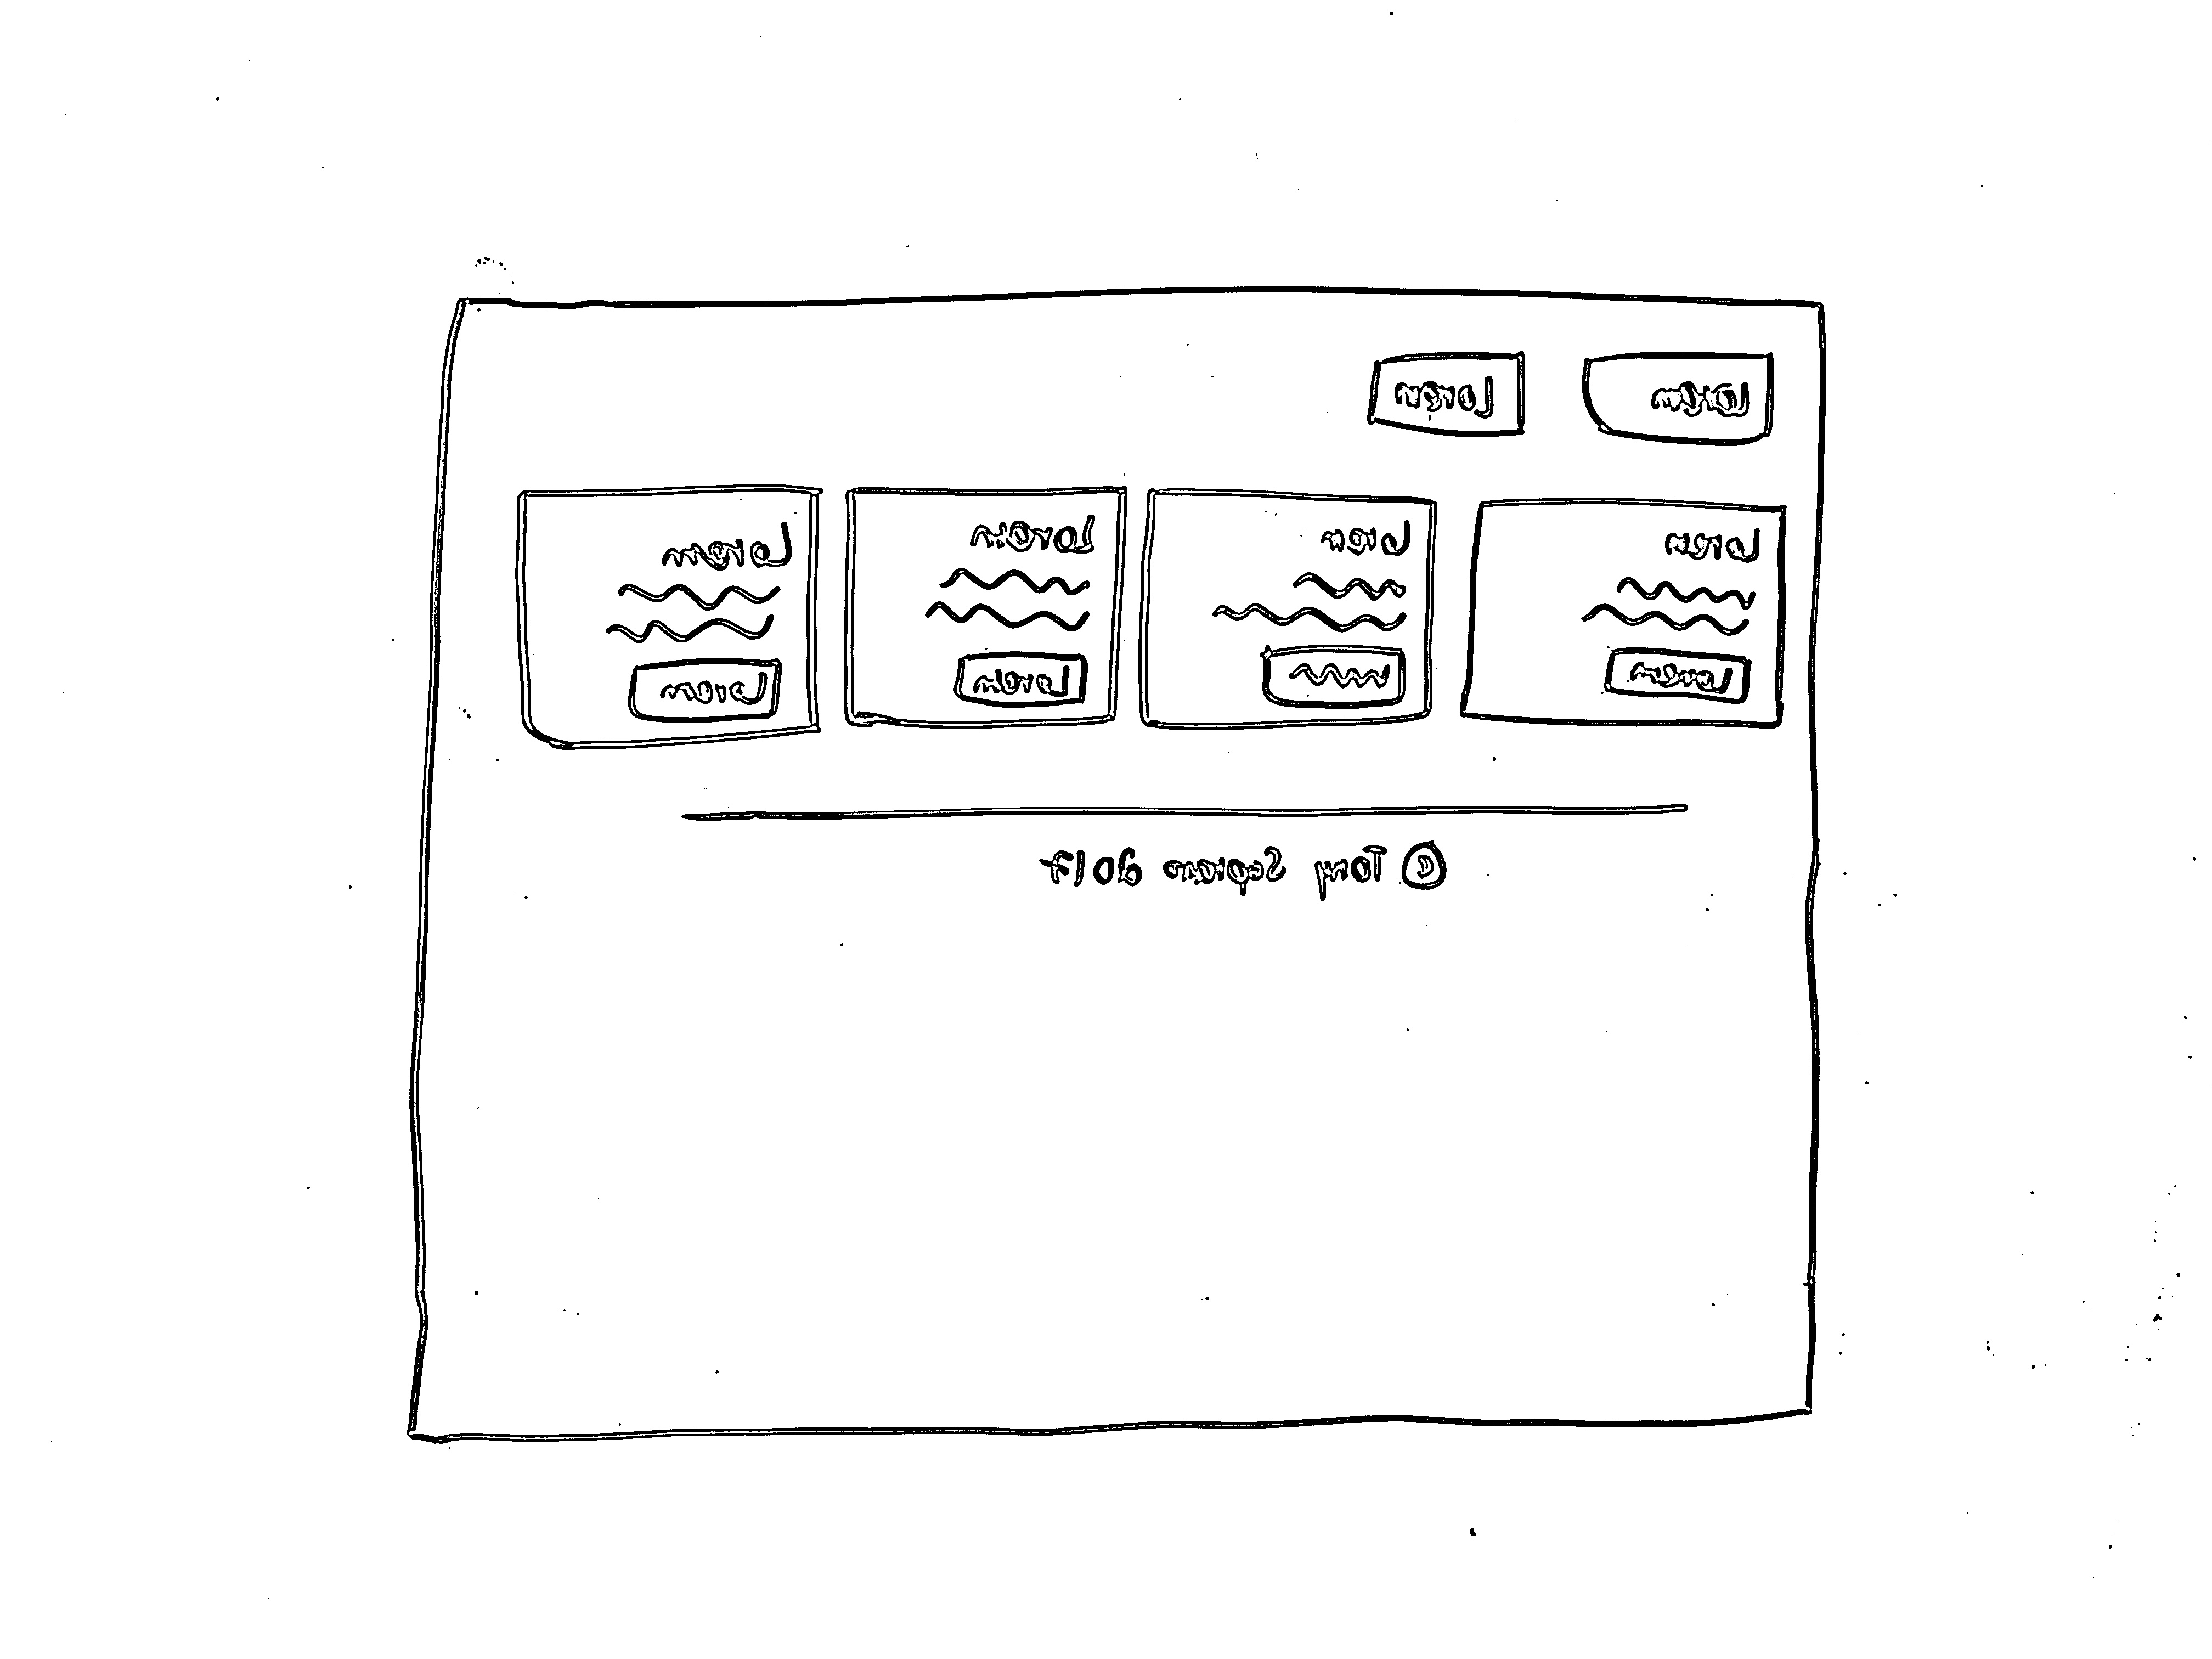 Lorem Lorem
Lorem Lorem Lorem Lorem
Lorem Lorem Lorem
© Tony Soprano 2017